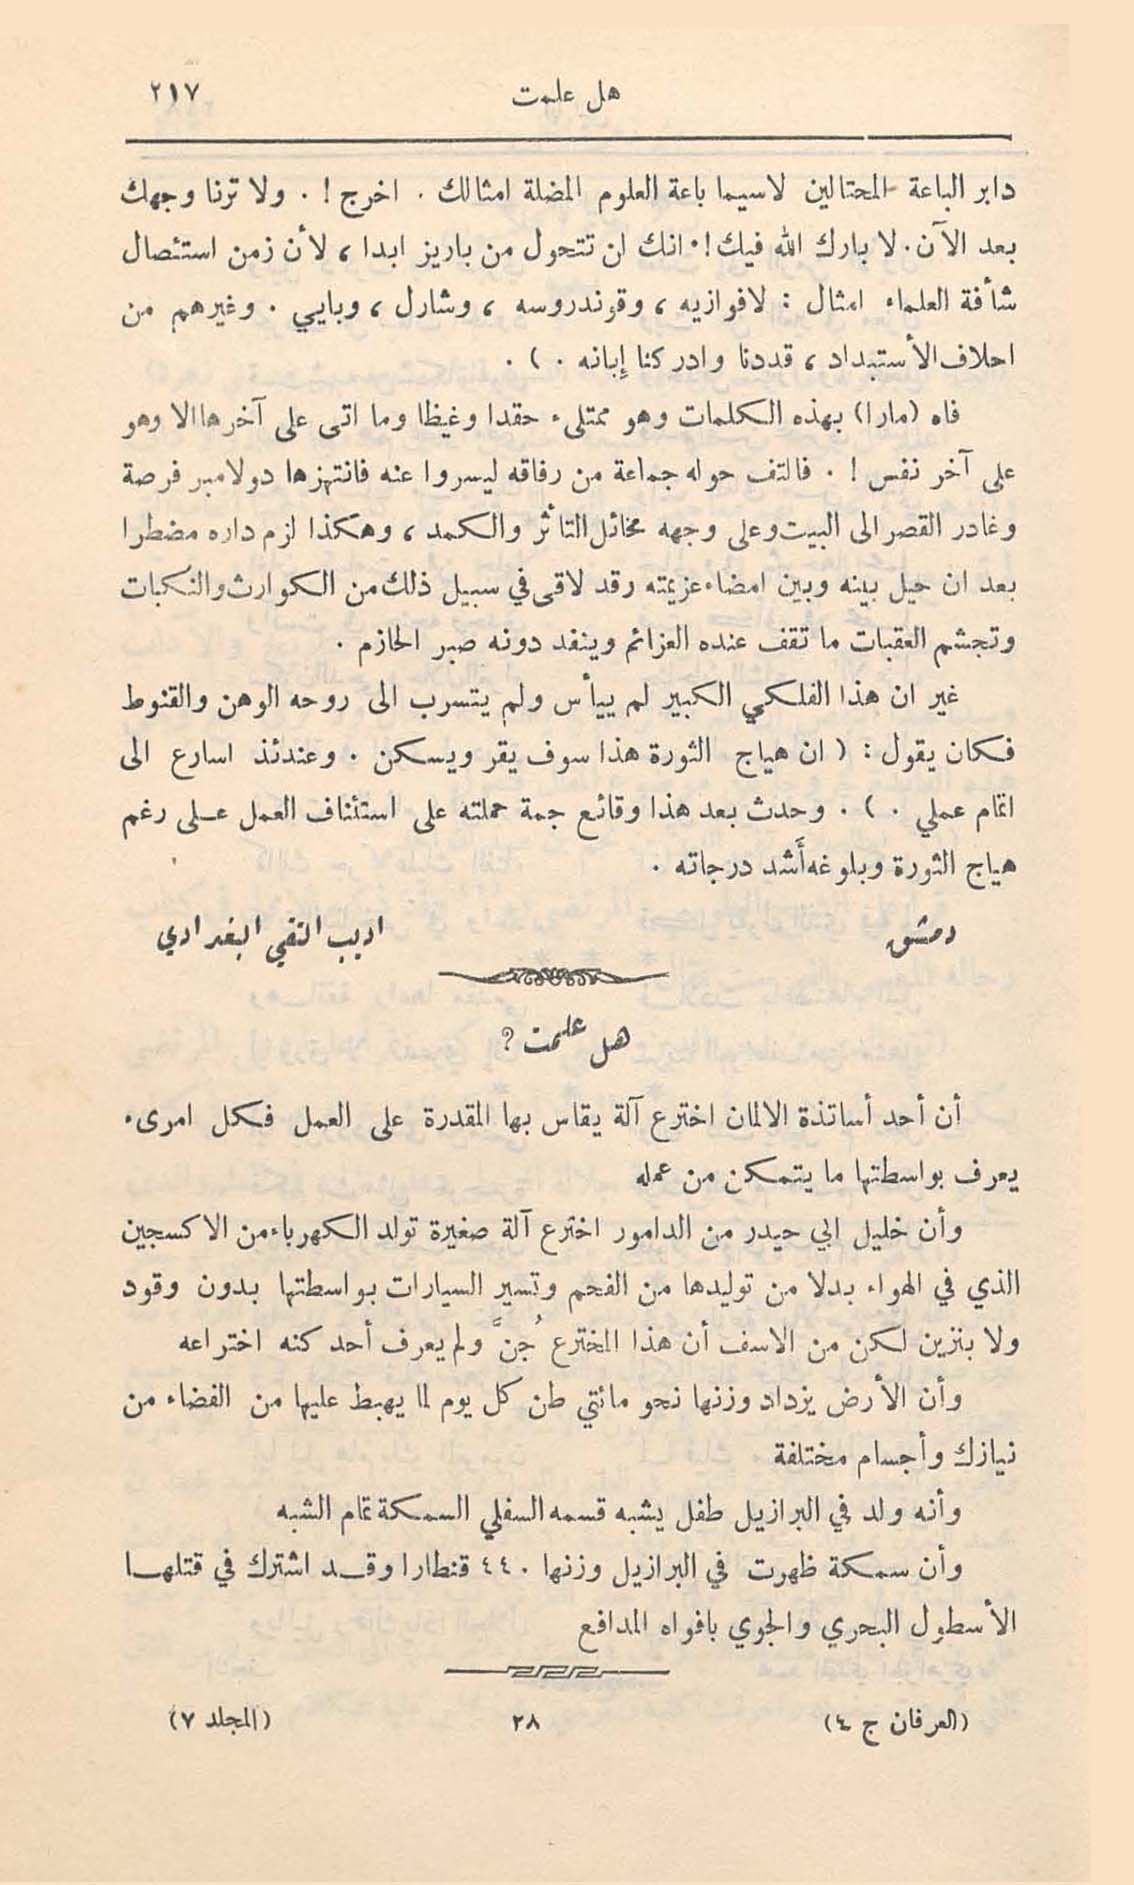 هل علمت
٢١٧
دابر الباعة المحتالين لاسيما باعة العلوم المضلة امثالك . اخرج ! . ولا ترنا وجهك
بعد الآن . لا بارك الله فيك ! . انك لن تتحول من باريز ابدا ، لأن زمن استئصال
شأفة العلماء امثال : لافوازيه ، وقوندروسه ، وشارل ، وبايي . وغيرهم من
احلاف الأستبداد ، قددنا وادركنا إبانه . ) .
فاه (مارا) بهذه الكلمات وهو ممتلىء حقدا وغيظا وما اتى على آخرها الا وهو
على آخر نفس ! . فالتف حوله جماعة من رفاقه ليسروا عنه فانتهزها دولامبر فرصة
وغادر القصر الى البيت وعلى وجهه مخائل التأثر والكمد ، وهكذا لزم داره مضطرا
بعد ان حيل بينه وبين امضاء عزيمته رقد لاقى في سبيل ذلك من الكوارث والنكبات
وتجشم العقبات ما تقف عنده العزائم وينفد دونه صبر الحازم .
غير ان هذا الفلكي الكبير لم ييأس ولم يتسرب الى روحه الوهن والقنوط
فكان يقول : ( ان هياج الثورة هذا سوف يقر ويسكن . وعندئذ اسارع الى
اتمام عملي . ) . وحدث بعد هذا وقائع جمة حملته على استئناف العمل على رغم
هياج الثورة وبلوغه أشد درجاته .
دمشق
اديب التقي البغدادي
هل علمت ؟
أن أحد أساتذة الالمان اخترع آلة يقاس بها المقدرة على العمل فكل امرىء
يعرف بواسطتها ما يتمكن من عمله
وأن خليل ابي حيدر من الدامور اخترع آلة صغيرة تولد الكهرباء من الاكسجين
الذي في الهواء بدلا من توليدها من الفحم وتسير السيارات بواسطتها بدون وقود
ولا بنزين لكن من الاسف أن هذا المخترع جُنَّ ولم يعرف أحد كنه اختراعه
وأن الأرض يزداد وزنها نحو مائتي طن كل يوم لما يهبط عليها من الفضاء من
نيازك وأجسام مختلفة
وأنه ولد في البرازيل طفل يشبه قسمه السفلي السمكة تمام الشبه
وأن سمكة ظهرت في البرازيل وزنها ٤٤٠ قنطارا وقد اشترك في قتلها
الأسطول البحري والجوي بافواه المدافع
(العرفان ج ٤)
٢٨
(المجلد ٧)